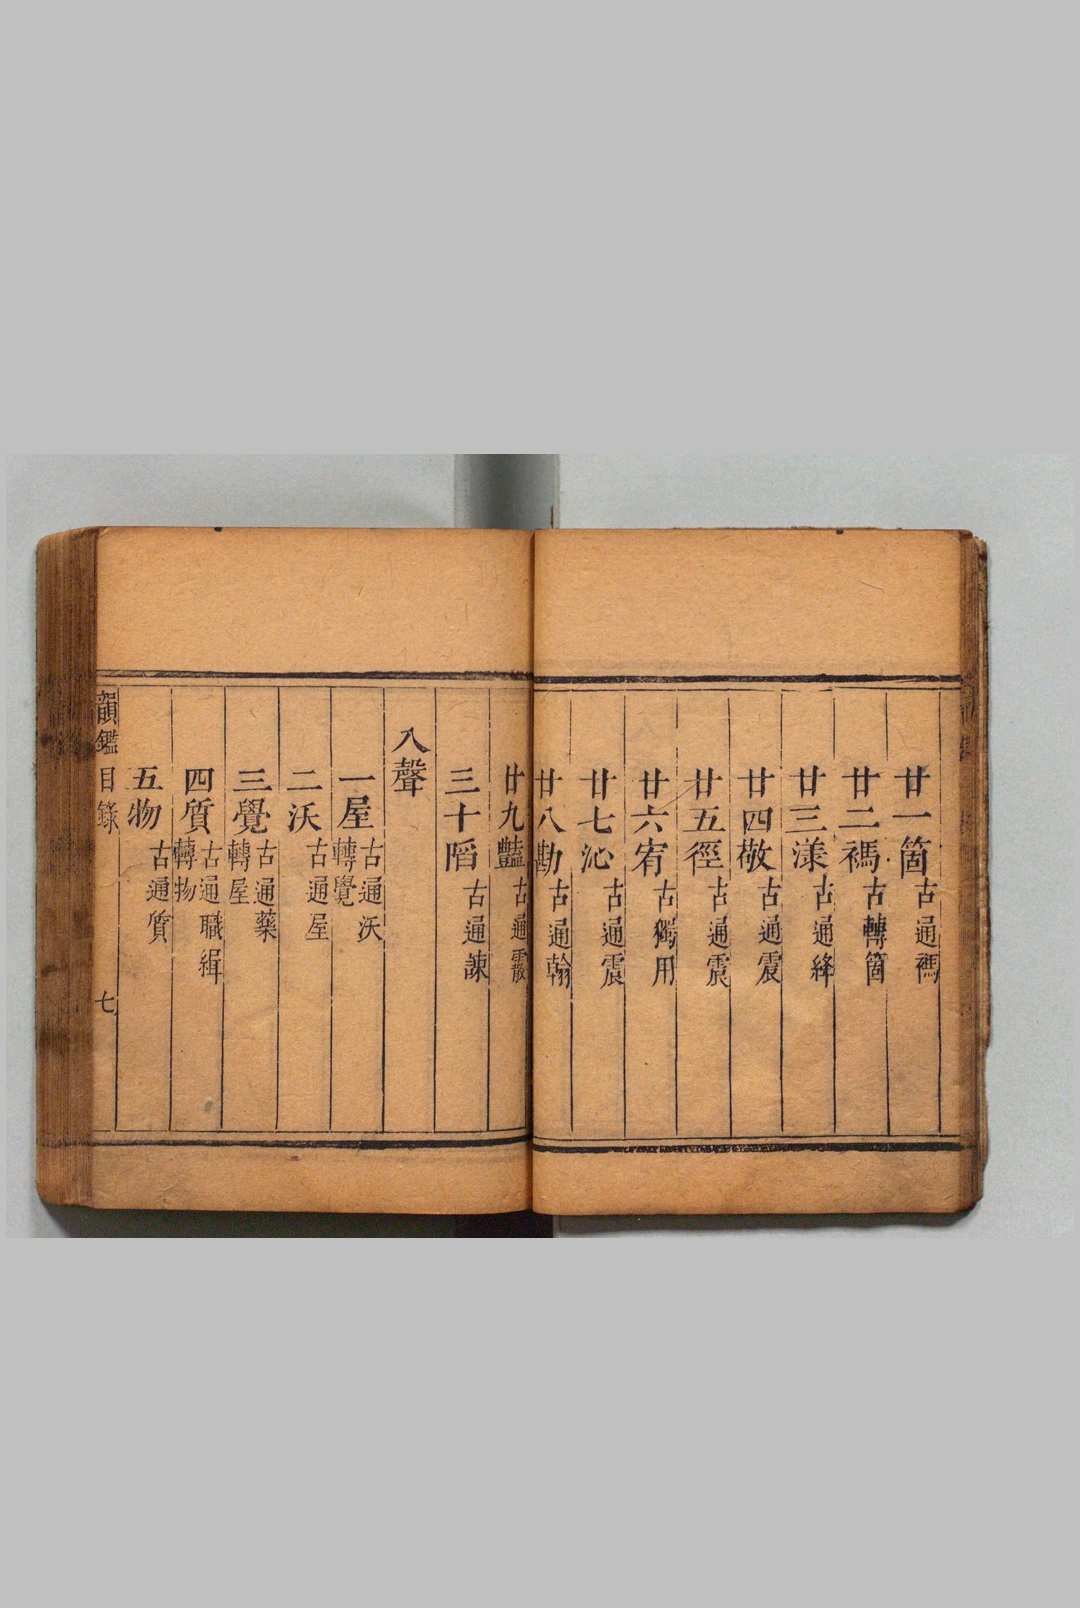 廿一箇古通禡
廿二禡古轉箇
廿三漾古通絳
廿四敬古通震
廿五徑古通震
廿六宥古獨用
廿七沁古通震
廿八勘古通翰
廿九豔古通霰
三十陷古通諫
入聲
一屋古通沃轉覺
二沃古通屋
三覺古通藥轉屋
四質古通職緝轉物
五物古通質
韻鑑 目錄 七